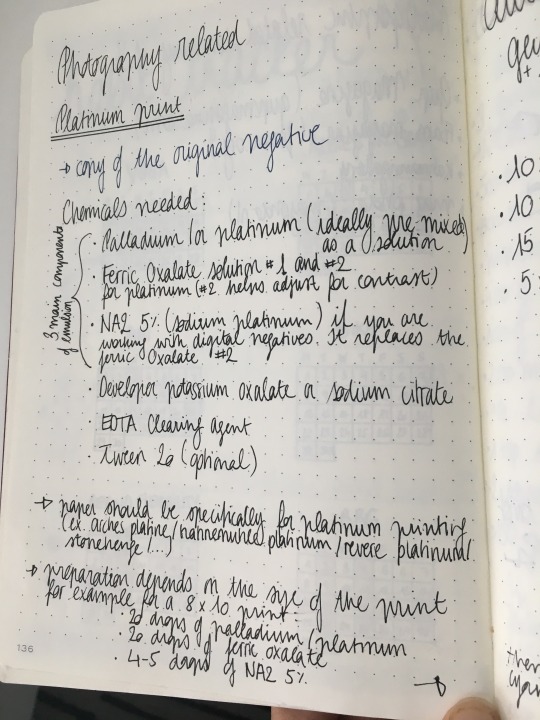 Photography related
Platinum print
→ copy of the original negative
Chemicals needed:
3 main components
of emulsion
· Palladium /or platinum (ideally pre-mixed)
as a solution
· Ferric Oxalate solution #1 and #2
for platinum (#2 helps adjust for contrast)
· NA2 5% (sodium platinum) if you are
working with digital negatives. It replaces the
ferric Oxalate #2
· Developer potassium oxalate or sodium citrate
· EDTA Clearing agent
· Tween 20 (optional)
→ paper should be specifically for platinum printing
(ex. arches platine/hahnemuhle platinum/revere platinum/
stonehenge/...)
→ preparation depends on the size of the print
for example for a 8x10 print =
· 20 drops of palladium/platinum
· 20 drops of ferric oxalate
· 4-5 drops of NA2 5%
→
136
· 10
· 10
· 15
· 5